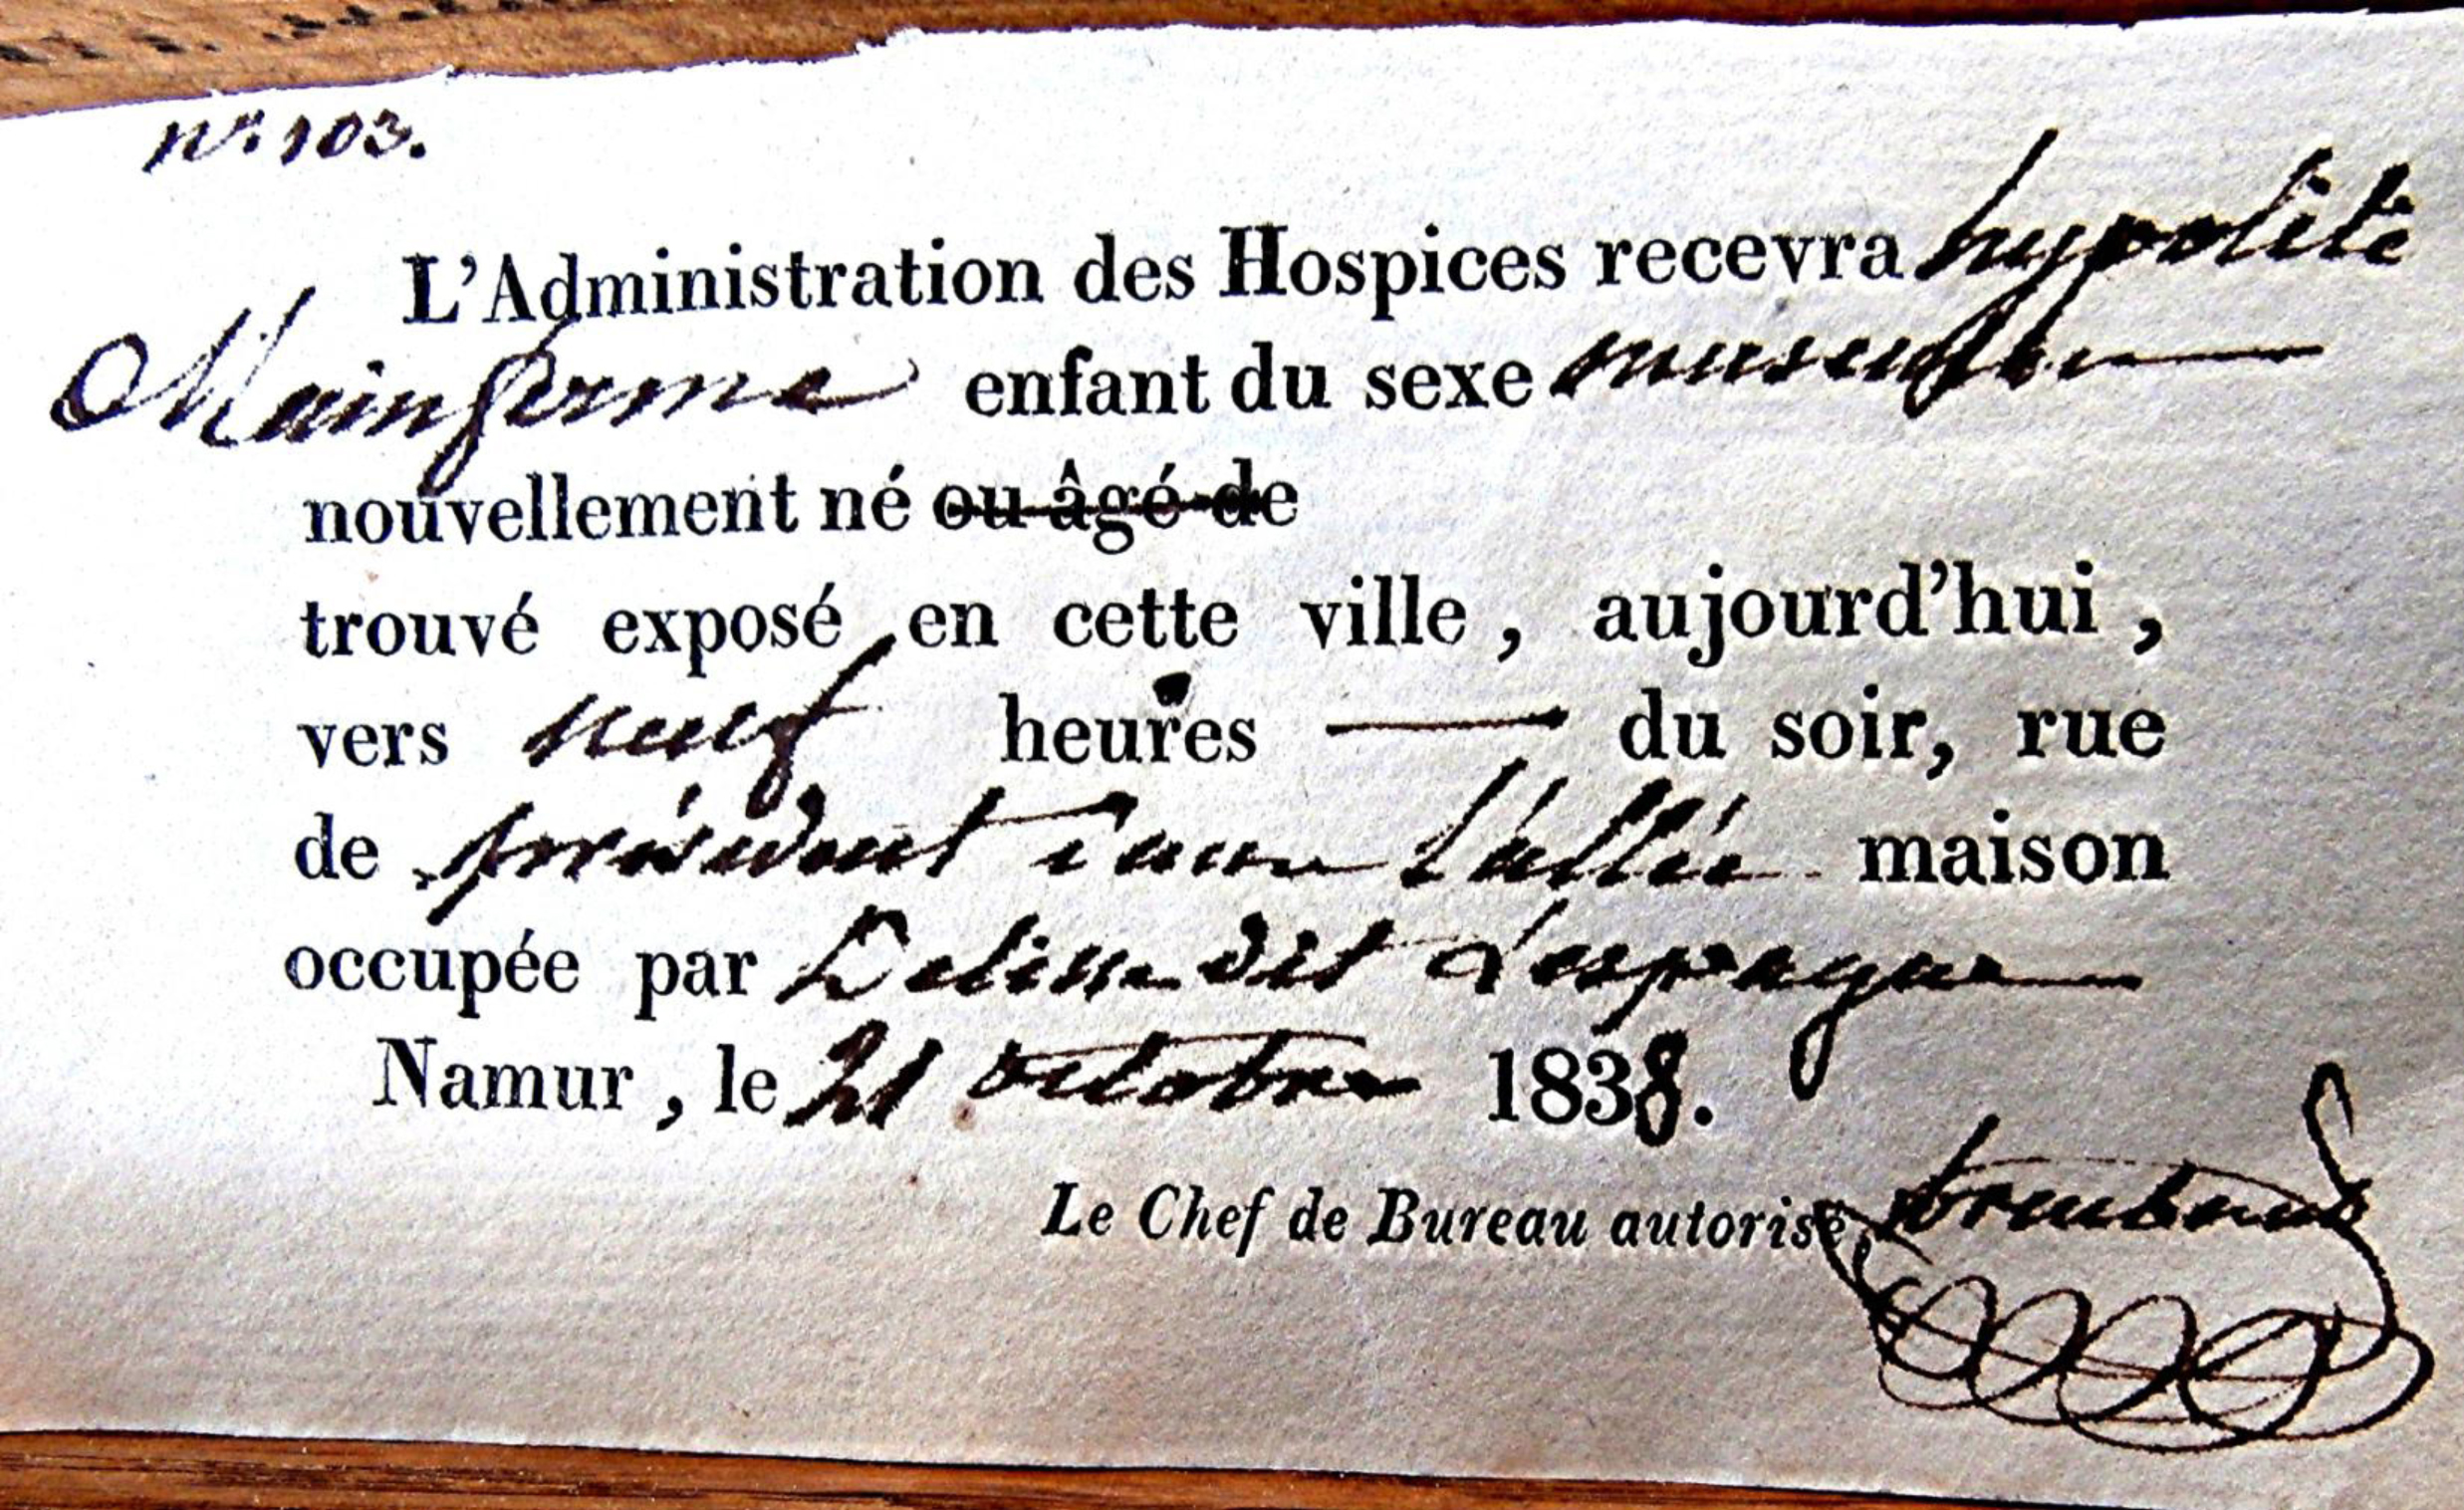 n.° 103.
L'Administration des Hospices recevra hypolite
Mainferme enfant du sexe masculin
nouvellement né ou âgé de
trouvé exposé en cette ville, aujourd'hui,
vers neuf heures — du soir, rue
de président dans l'allée maison
occupée par dit Lespagne
Namur, le 21 octobre 1838.
Le Chef de Bureau autorisé,